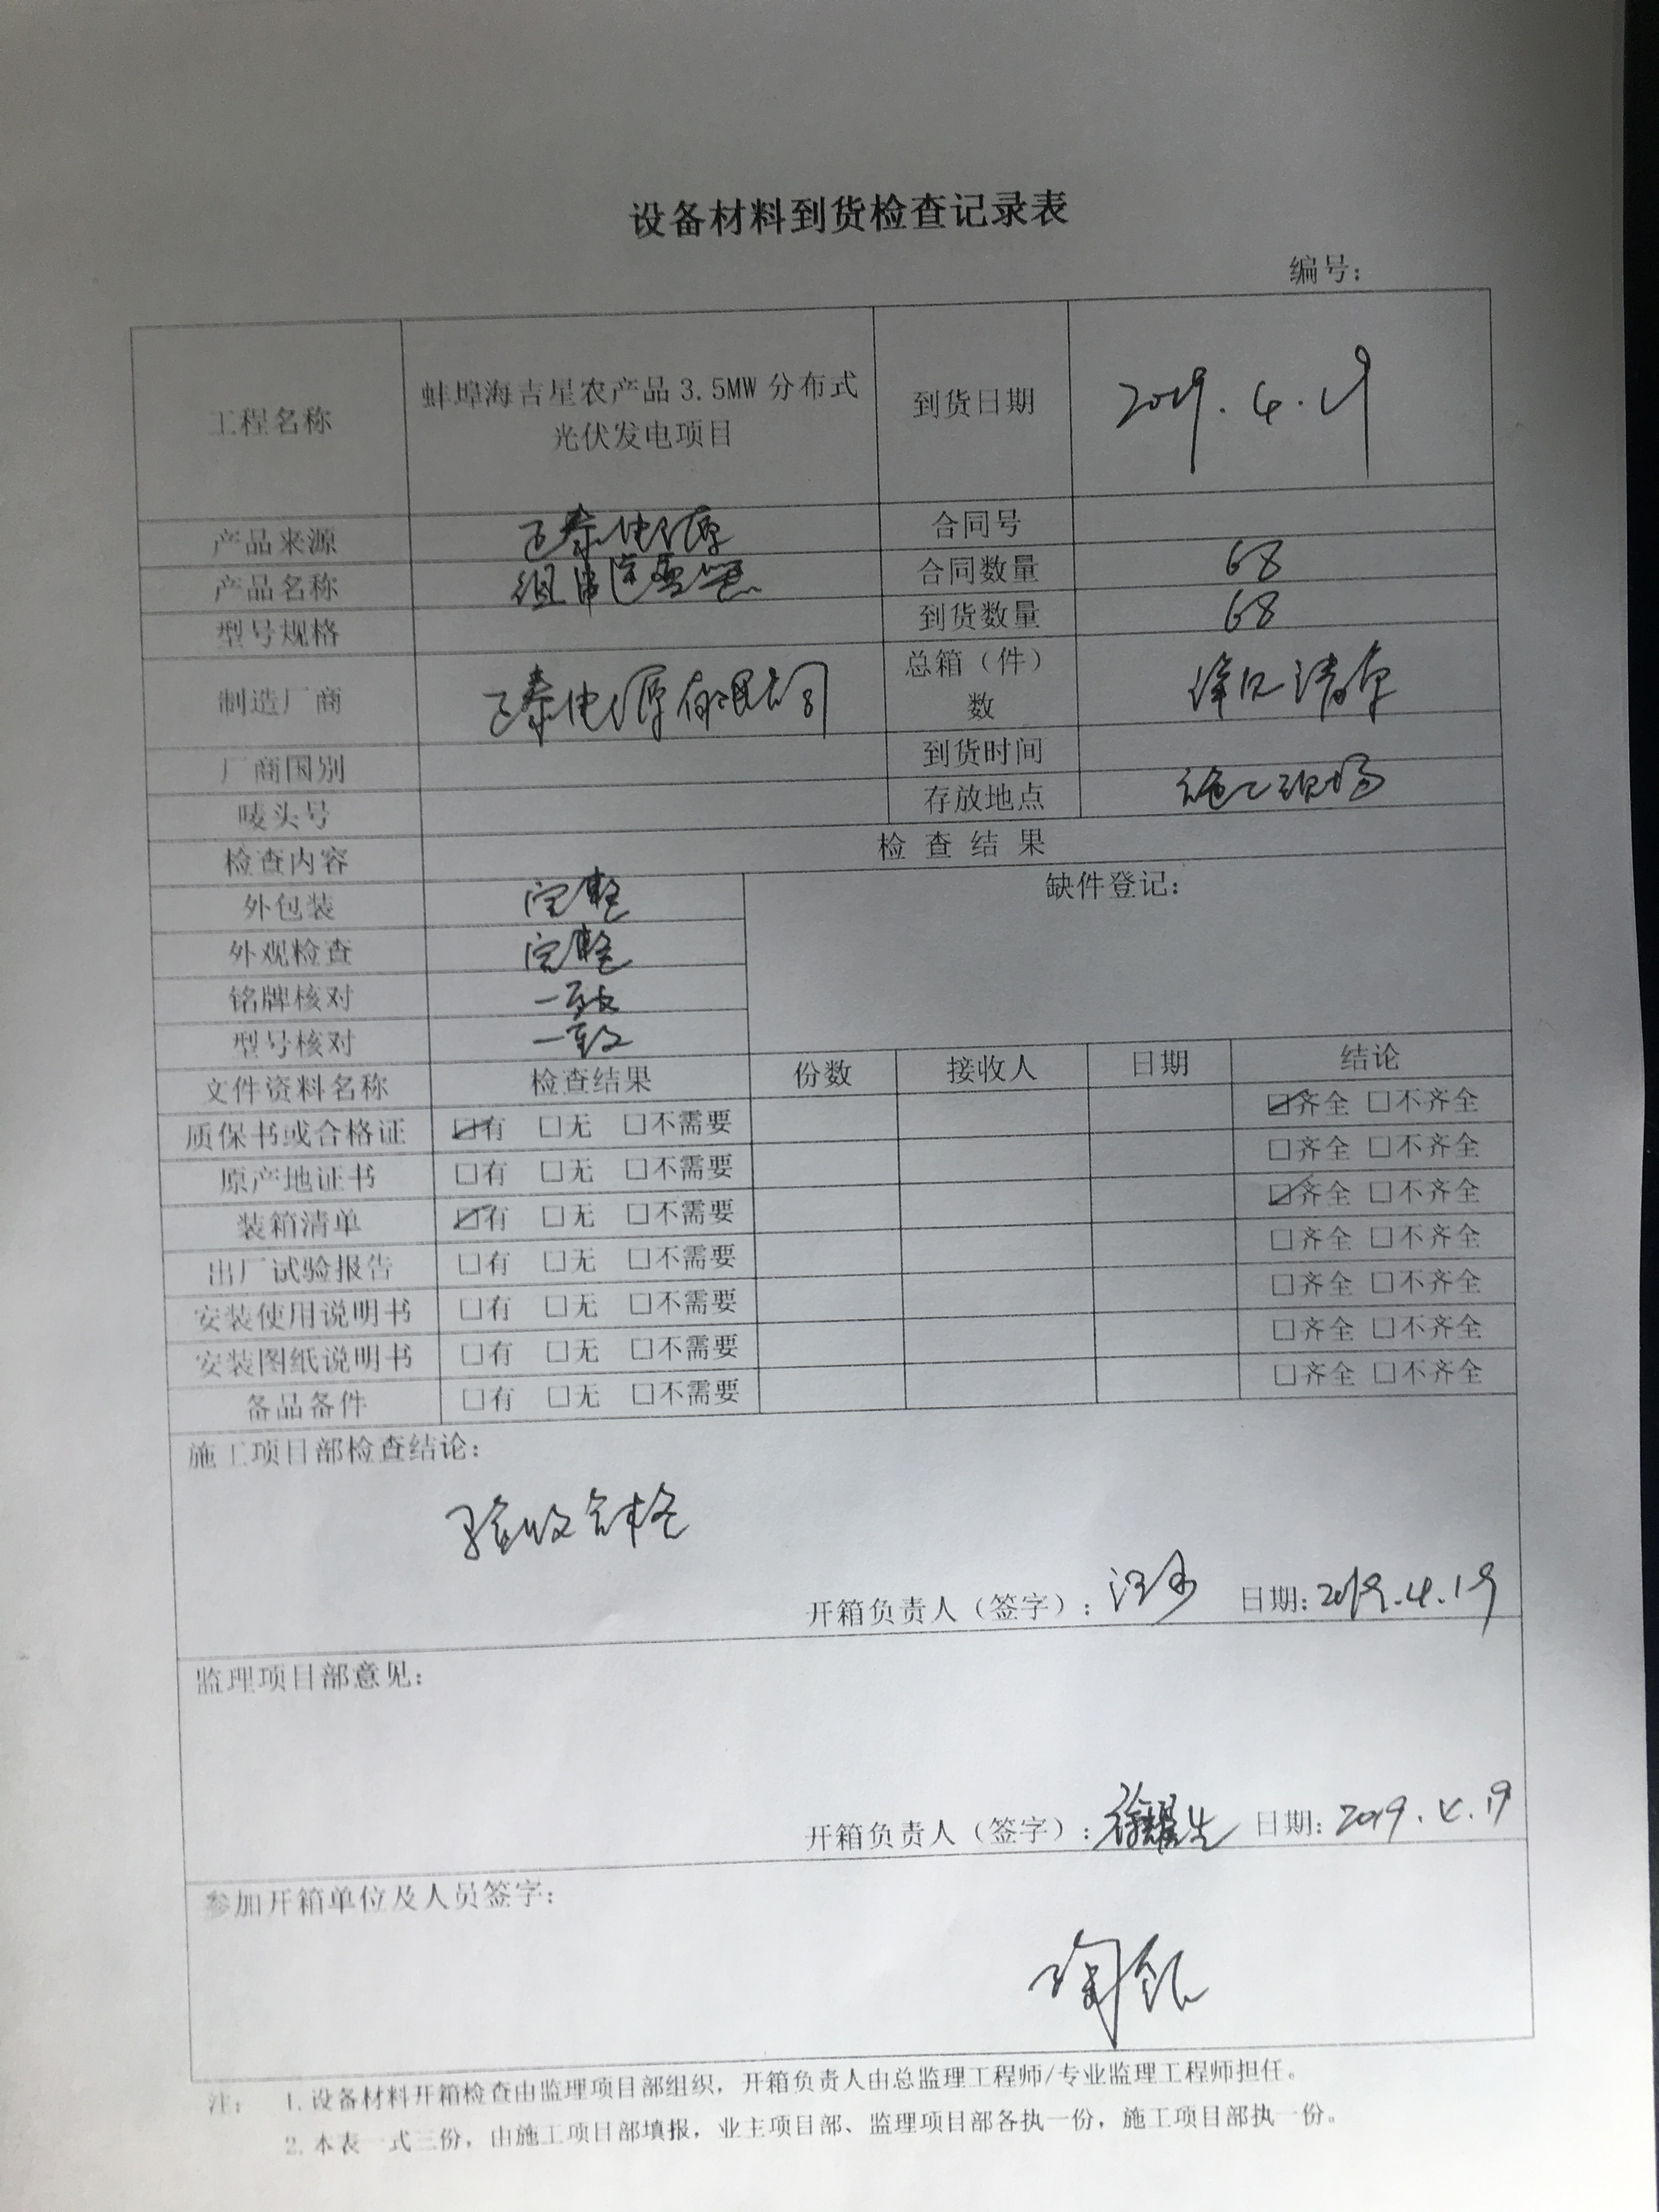 设备材料到货检查记录表
编号：
工程名称 蚌埠海吉星农产品3.5MW分布式光伏发电项目 到货日期 2019.4.19
产品来源 正泰电源 合同号
产品名称 组串逆变器 合同数量 68
型号规格 到货数量 68
制造厂商 正泰电源有限公司 总箱（件）数 详见清单
厂商国别 到货时间
唛头号 存放地点 施工现场
检查内容 检查结果
外包装 完整 缺件登记：
外观检查 完整
铭牌核对 一致
型号核对 一致
文件资料名称 检查结果 份数 接收人 日期 结论
质保书或合格证 ☑有 □无 □不需要 ☑齐全 □不齐全
原产地证书 □有 □无 □不需要 □齐全 □不齐全
装箱清单 ☑有 □无 □不需要 ☑齐全 □不齐全
出厂试验报告 □有 □无 □不需要 □齐全 □不齐全
安装使用说明书 □有 □无 □不需要 □齐全 □不齐全
安装图纸说明书 □有 □无 □不需要 □齐全 □不齐全
备品备件 □有 □无 □不需要 □齐全 □不齐全
施工项目部检查结论：
验收合格
开箱负责人（签字）： 日期：2019.4.19
监理项目部意见：
开箱负责人（签字）：徐耀生 日期：2019.4.19
参加开箱单位及人员签字：
注： 1.设备材料开箱检查由监理项目部组织，开箱负责人由总监理工程师/专业监理工程师担任。
2.本表一式三份，由施工项目部填报，业主项目部、监理项目部各执一份，施工项目部执一份。